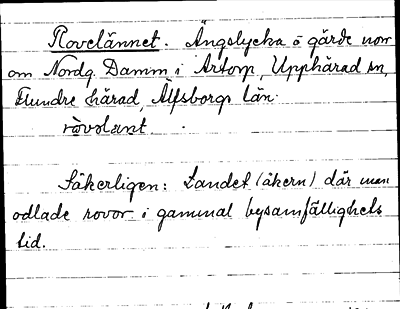 Rovelännet. Ängslycka o gärde norr
om Nordg. Damm i Artorp, Upphärad sn,
Flundre härad, Älfsborgs län.
ròvolant
Säkerligen: Landet (åkern) där man
odlade rovor i gammal bysamfällighets
tid.